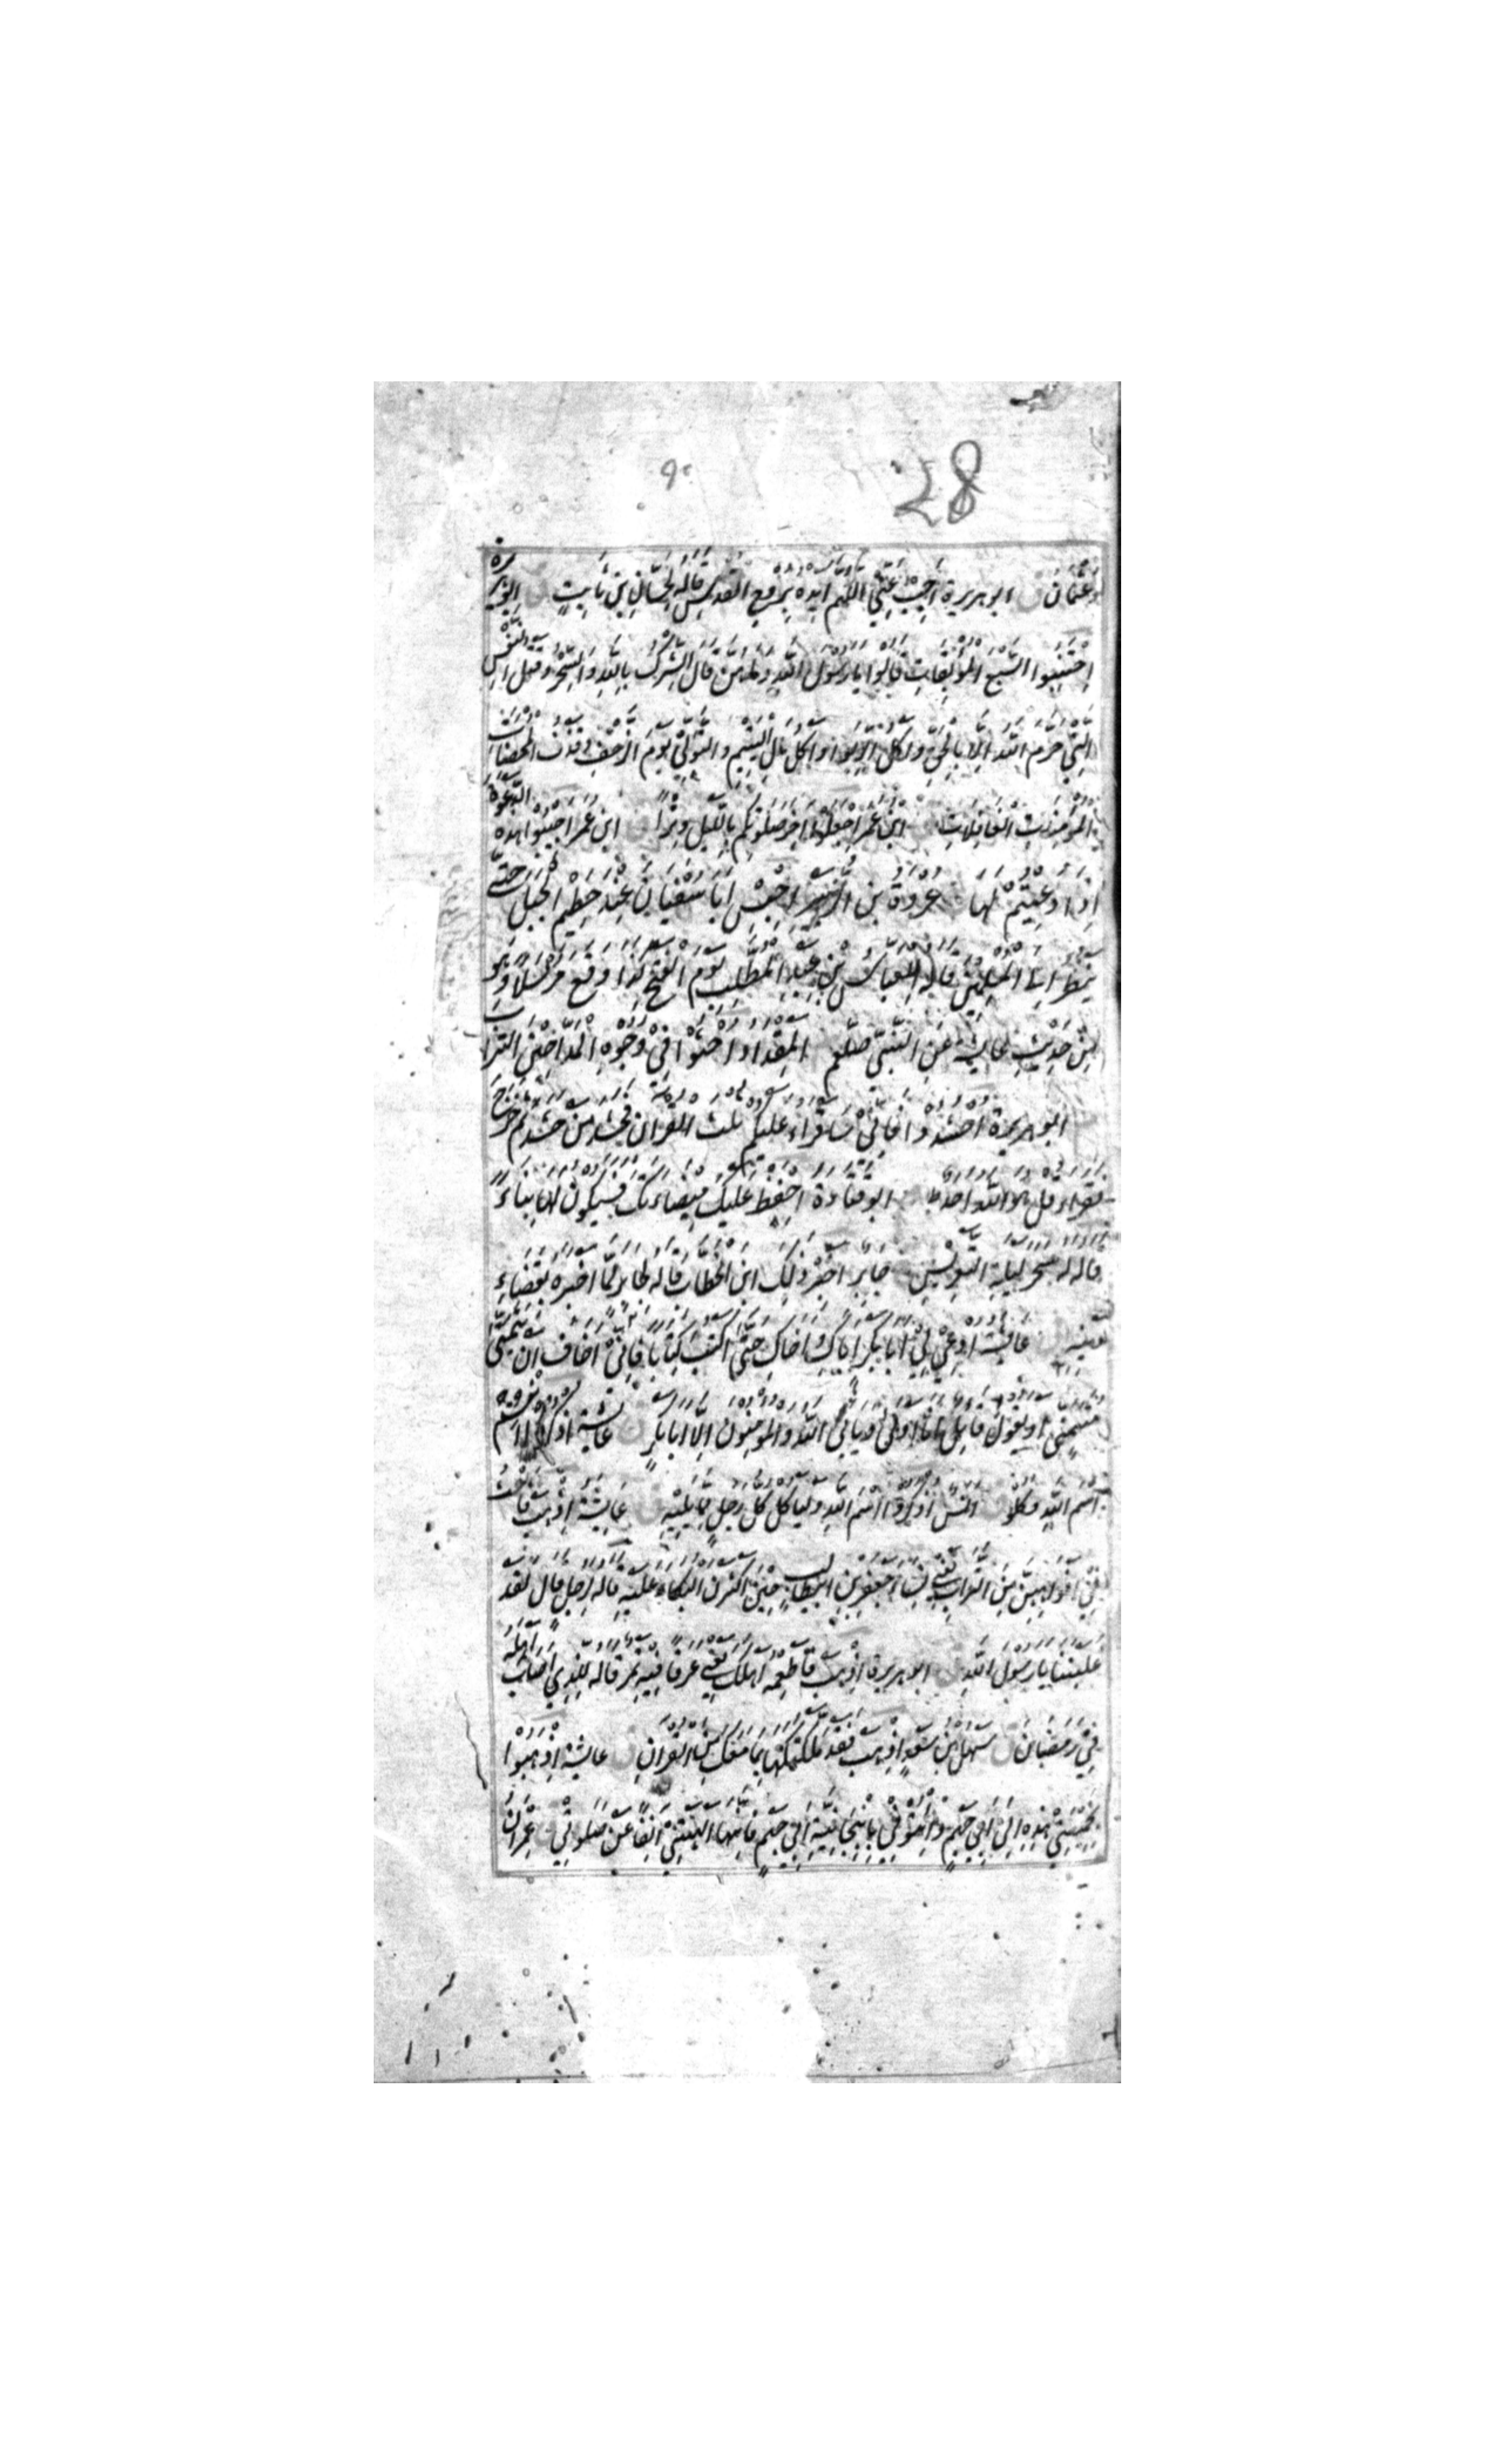 28
وَعُثْمَانَ ق ابو هريرة اَجِبْ عَنِّي اللّٰهم ايّده بِرُوحِ القدس قاله لِحَسّان بْنِ ثابِتٍ ق ابو هريرة
اِجْتَنِبُوا السَّبْعَ المُوبِقَاتِ قالوا يا رسول اللّٰه وما هن قال الشرك باللّٰه والسحر وقتل النفس
التي حرم اللّٰه الا بالحق واكل الربوا واكل مال اليتيم والتولي يوم الزحف وقذف المحصنات
المؤمنات الغافلات ابن عمر اجعلوا اخر صلوتكم بالليل وترا ق ابن عمر اجيبوا هذه الدعوة
اذا دعيتم لها عروة بن الزبير احبس ابا سفيان عند حطم الجبل حتى
ينظر الى المسلمين قاله للعباس بن عبد المطلب يوم الفتح كذا وقع مرسلا وهو
من حديث عن النبي صلعم المقداد احثوا في وجوه المداحين التراب
ابو هريرة احشدوا فاني ساقراء عليكم ثلث القران فحشد من حشد ثم خرج
فقراء قل هو اللّٰه احد ابو قتادة احفظ عليك ميضاءتك فسيكون لها نباء
قاله له سحر ليلة التعريس جابر اخبر ذلك ابن الخطاب قاله لجابر لما اخبره بقضاء
دينه عايشة ادعي لي ابا بكر اباك واخاك حتى اكتب كتابا فاني اخاف ان يتمنى
متمني او يقول قايل انا اولى ويابى اللّٰه والمومنون الا ابا بكر ق عايشة اذكروا انتم
اسم اللّٰه وكلوا ق انس اذكروا اسم اللّٰه ولياكل كل رجل مما يليه ق عايشة اذهب فاحث
في افواههن من التراب يعني نساء جعفر بن ابيطالب حين اكثرن البكاء عليه قاله لرجل قال لقد
غلبننا يا رسول اللّٰه ق ابو هريرة اذهب فاطعمه اهلك يعني عرقا فيه تمر قاله للذي اصاب اهله
في رمضان ق سهل بن سعد اذهب فقد ملكتكها بما معك من القران ق عايشة اذهبوا
بخميصتي هذه الى ابي جهم وائتوني بانبجانية ابي جهم فانها الهتني انفا عن صلوتي ق عمران